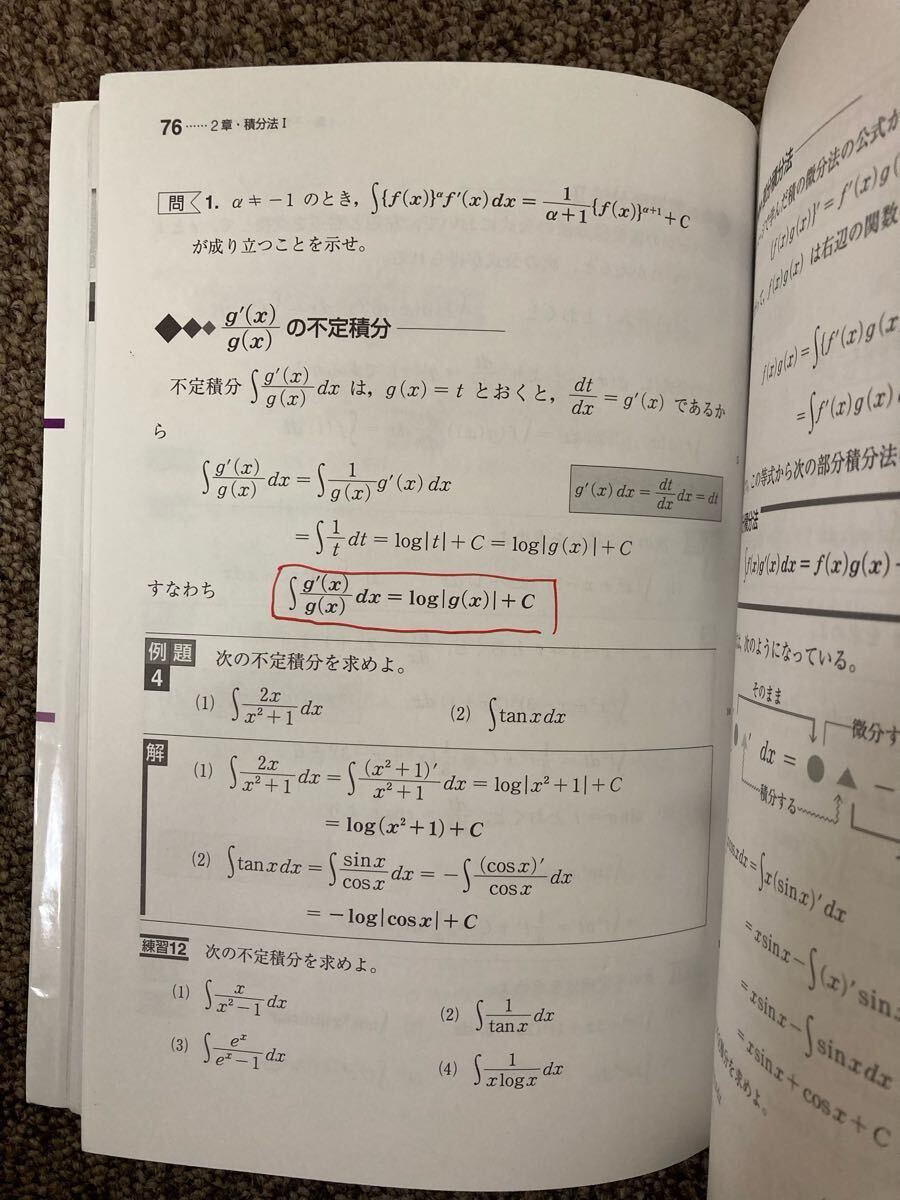 76……2章・積分法Ⅰ
問 1. α≠−1 のとき，∫{f(x)}^α f′(x)dx = 1/(α+1) {f(x)}^(α+1) + C
が成り立つことを示せ。
g′(x)/g(x) の不定積分
不定積分 ∫g′(x)/g(x) dx は，g(x)=t とおくと，dt/dx = g′(x) であるか
ら
∫g′(x)/g(x) dx = ∫1/g(x) g′(x) dx
g′(x) dx = dt/dx dx = dt
= ∫1/t dt = log|t| + C = log|g(x)| + C
すなわち ∫g′(x)/g(x) dx = log|g(x)| + C
例題4 次の不定積分を求めよ。
(1) ∫2x/(x²+1) dx (2) ∫tan x dx
解
(1) ∫2x/(x²+1) dx = ∫(x²+1)′/(x²+1) dx = log|x²+1| + C
= log(x²+1) + C
(2) ∫tan x dx = ∫sin x/cos x dx = −∫(cos x)′/cos x dx
= −log|cos x| + C
練習12 次の不定積分を求めよ。
(1) ∫x/(x²−1) dx (2) ∫1/tan x dx
(3) ∫e^x/(e^x−1) dx (4) ∫1/(x log x) dx
積分法
で学んだ積の微分法の公式か
{f(x)g(x)}′ = f′(x)g(
f(x)g(x) は右辺の関数
f(x)g(x) = ∫{f′(x)g(x
= ∫f′(x)g(x)
この等式から次の部分積分法
積分法
∫f(x)g′(x)dx = f(x)g(x) −
次のようになっている。
そのまま
微分す
′ dx = ● ▲ −
積分する
cos x dx = ∫x(sin x)′dx
= x sin x − ∫(x)′ sin x
= x sin x − ∫sin x dx
= x sin x + cos x + C
を求めよ。